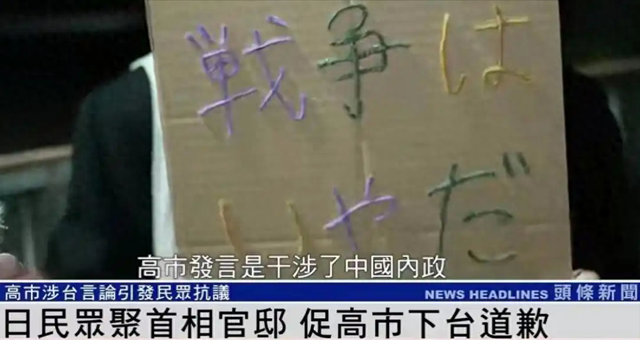 戦争は
いやだ
高市發言是干涉了中國內政
高市涉台言論引發民眾抗議
NEWS HEADLINES 頭條新聞
日民眾聚首相官邸 促高市下台道歉